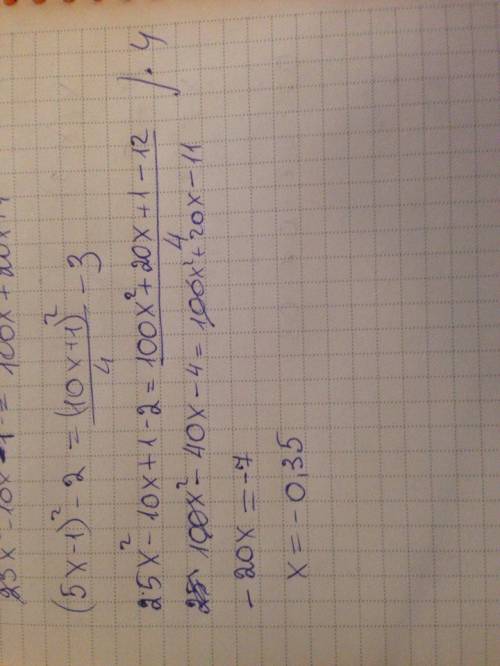 25x² - 10x - 1 = 100x + 20x + 1
(5x-1)² - 2 = (10x+1)²/4 - 3
25x² - 10x + 1 - 2 = (100x² + 20x + 1 - 12)/4 /·4
100x² - 40x - 4 = 100x² + 20x - 11
- 20x = -7
x = - 0,35